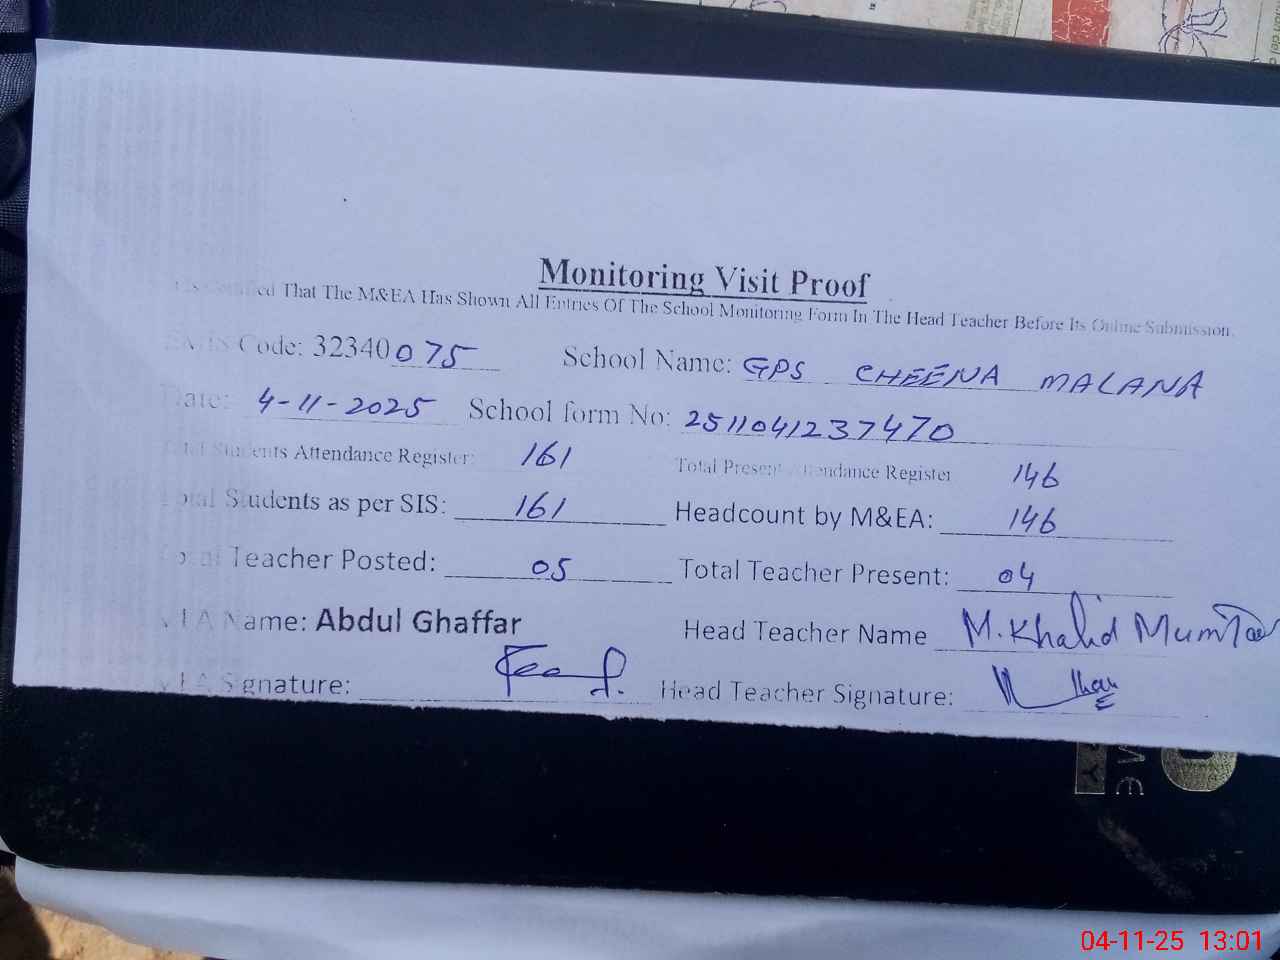 Monitoring Visit Proof
Certified That The M&EA Has Shown All Entries Of The School Monitoring Form In The Head Teacher Before Its Online Submission.
EMIS Code: 32340075 School Name: GPS CHEENA MALANA
Date: 4-11-2025 School form No: 2511041237470
Total Students Attendance Register: 161 Total Present Attendance Register 146
Total Students as per SIS: 161 Headcount by M&EA: 146
Total Teacher Posted: 05 Total Teacher Present: 04
MEA Name: Abdul Ghaffar Head Teacher Name M. Khalid Mumtaz
MEA Signature: Head Teacher Signature:
04-11-25 13:01